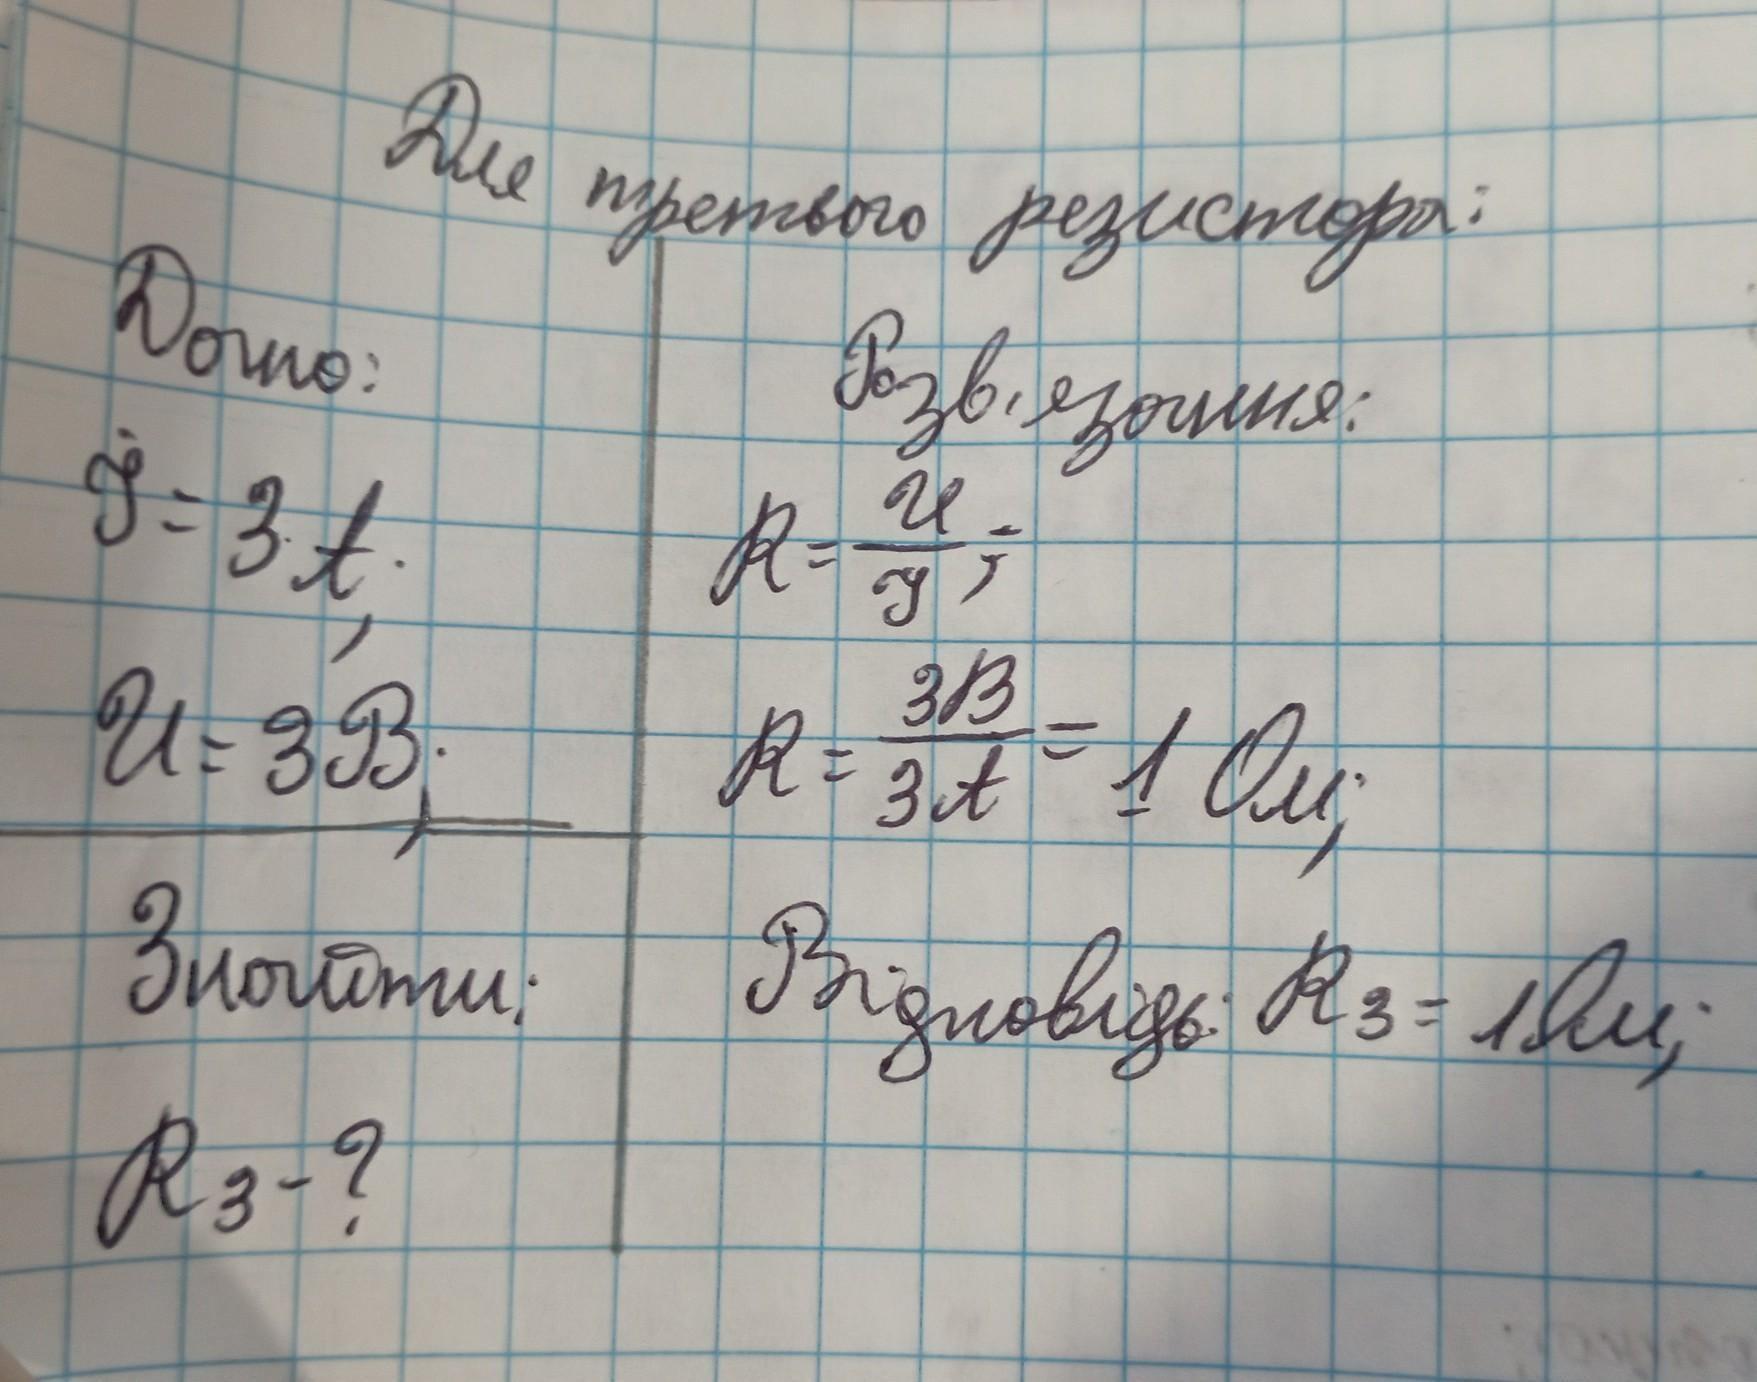 Для третього резистора:
Дано:
I = 3 А;
U = 3 В;
Знайти:
R3 - ?
Розв'язання:
R = U/I;
R = 3В/3А = 1 Ом;
Відповідь: R3 = 1 Ом;